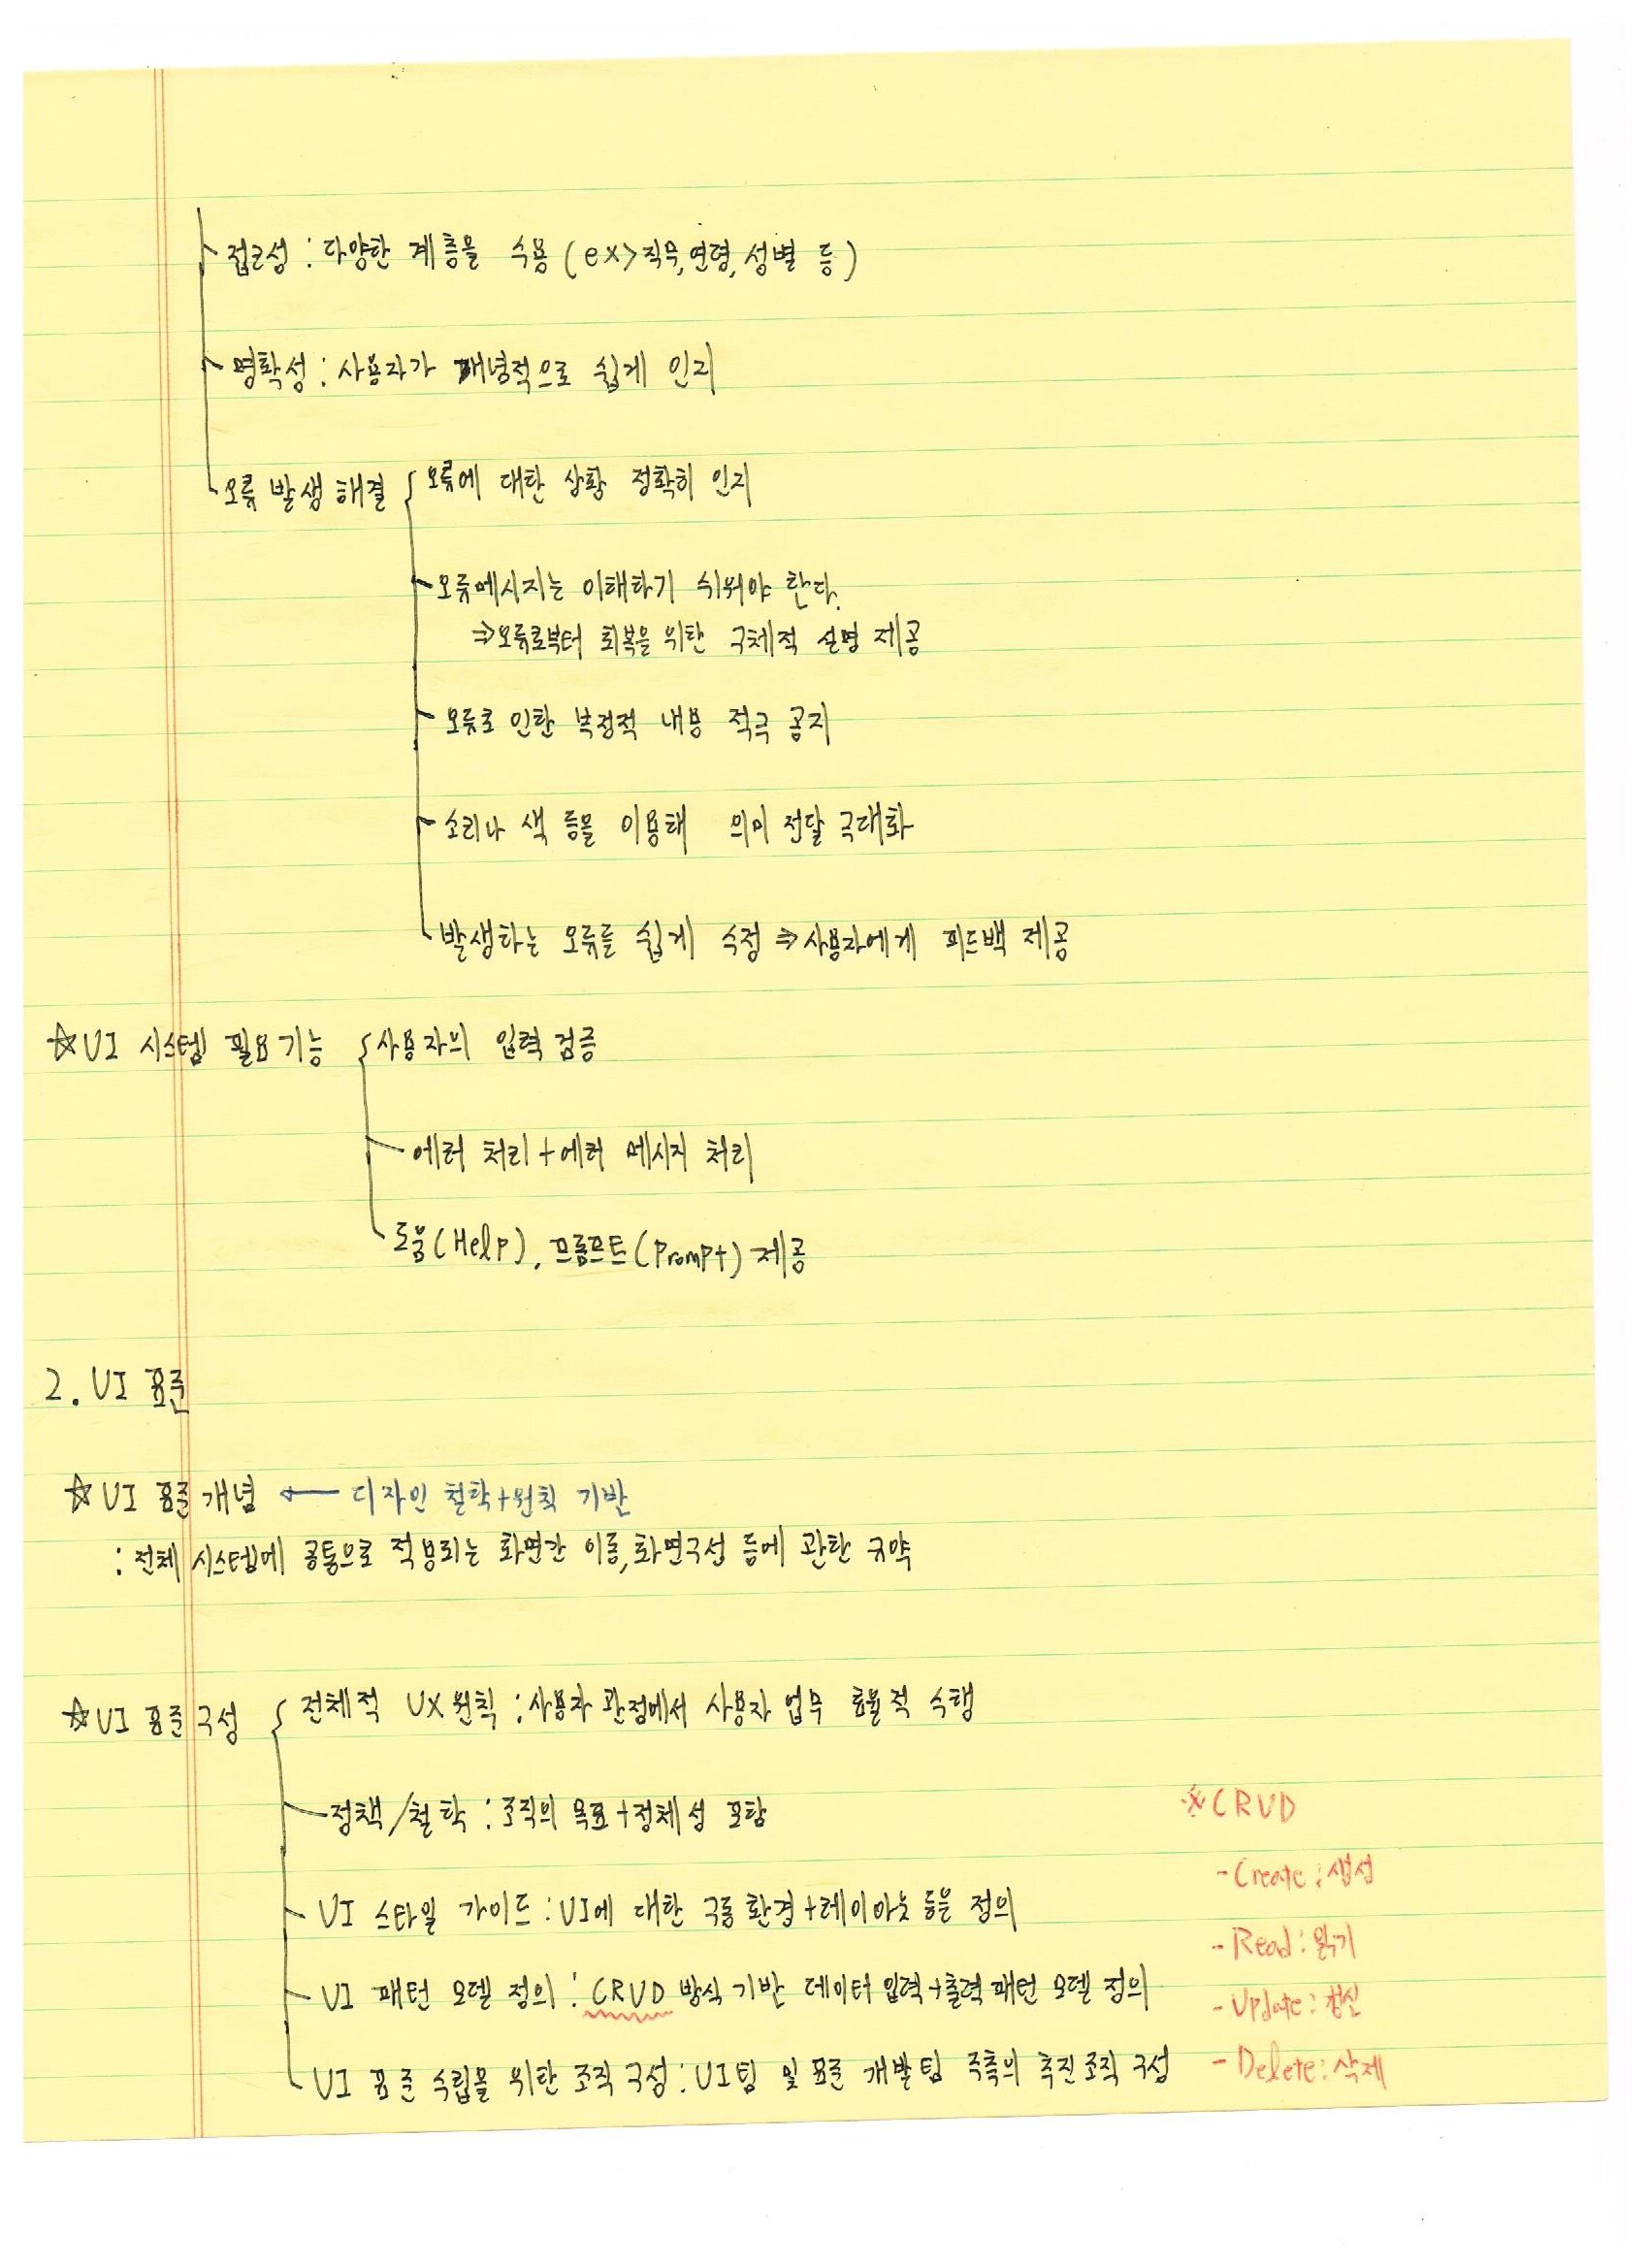 접근성 : 다양한 계층을 수용 (ex>직무,연령,성별 등)
명확성 : 사용자가 개념적으로 쉽게 인지
오류 발생 해결 { 오류에 대한 상황 정확히 인지
오류메시지는 이해하기 쉬워야 한다.
⇒오류로부터 회복을 위한 구체적 설명 제공
오류로 인한 부정적 내용 적극 공지
소리나 색 등을 이용해 의미 전달 극대화
발생하는 오류를 쉽게 수정 ⇒사용자에게 피드백 제공
☆UI 시스템 필요기능 { 사용자의 입력 검증
에러 처리+에러 메시지 처리
도움(Help), 프롬프트(Prompt) 제공
2. UI 표준
☆UI 표준 개념 ← 디자인 철학+원칙 기반
: 전체 시스템에 공통으로 적용되는 화면간 이동,화면구성 등에 관한 규약
☆UI 표준 구성 { 전체적 UX 원칙 : 사용자 관점에서 사용자 업무 효율적 수행
정책/철학 : 조직의 목표+정체성 포함
UI 스타일 가이드 : UI에 대한 구동 환경+레이아웃 등을 정의
UI 패턴 모델 정의 : CRUD 방식 기반 데이터 입력+출력 패턴 모델 정의
UI 표준 수립을 위한 조직 구성 : UI팀 및 표준 개발팀 주축의 추진조직 구성
※CRUD
-Create : 생성
-Read : 읽기
-Update : 갱신
-Delete : 삭제